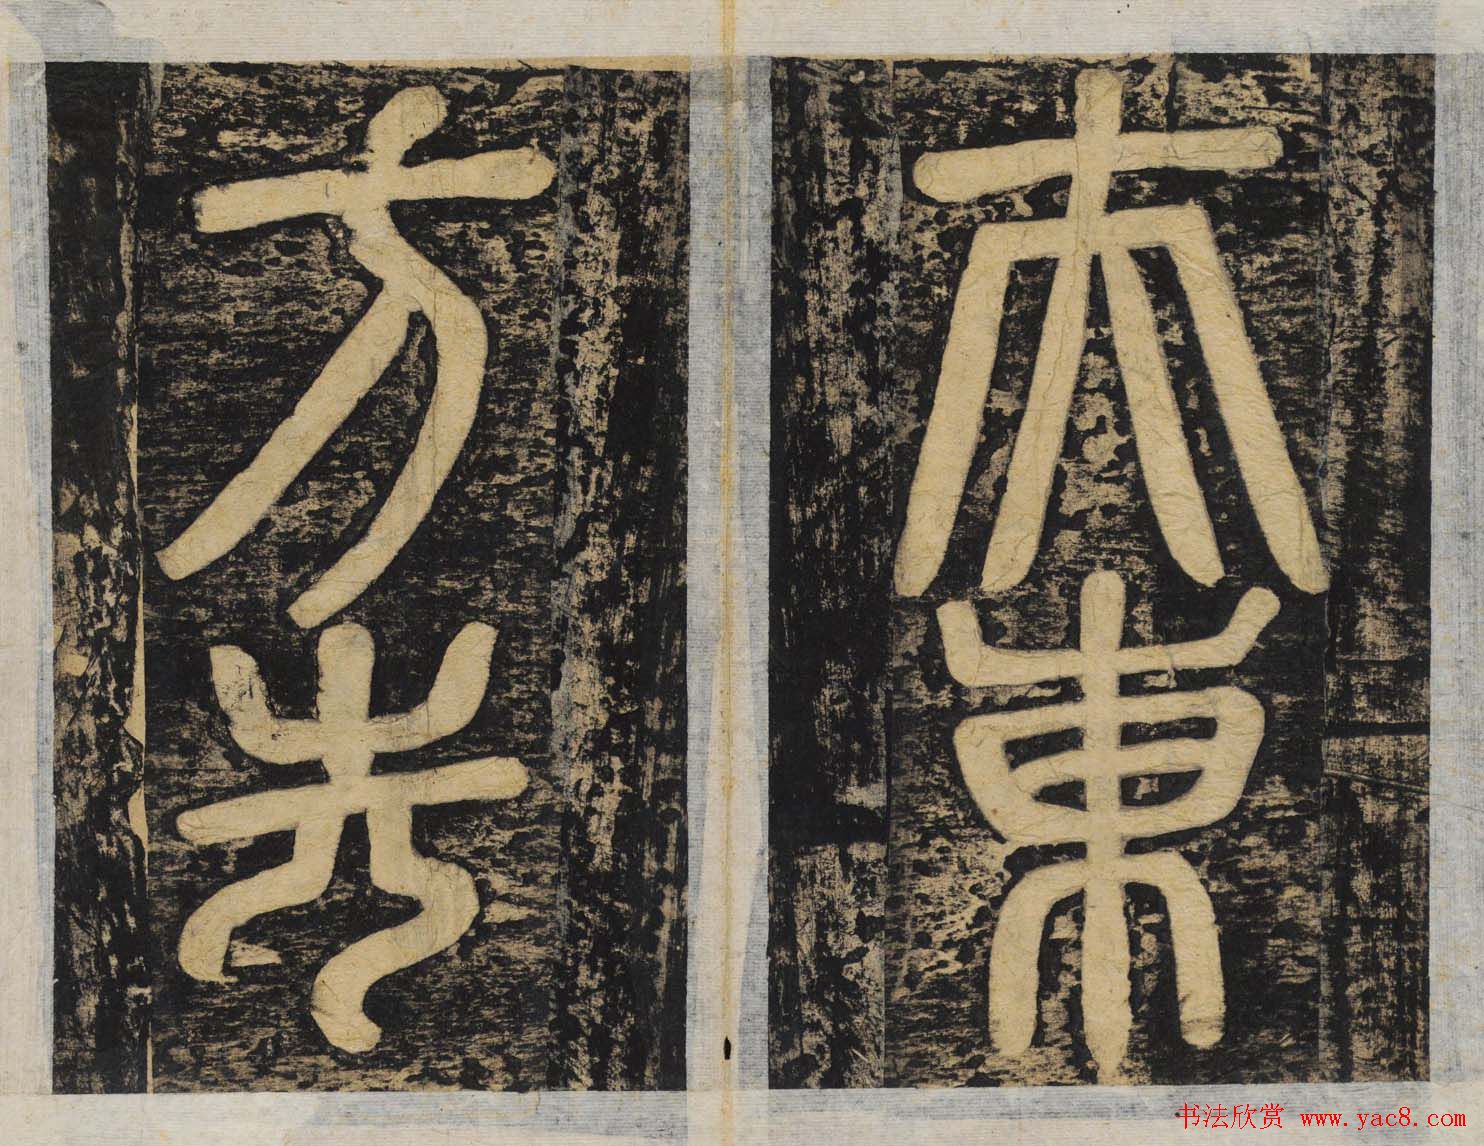 夫東
方先
书法欣赏 www.yac8.com